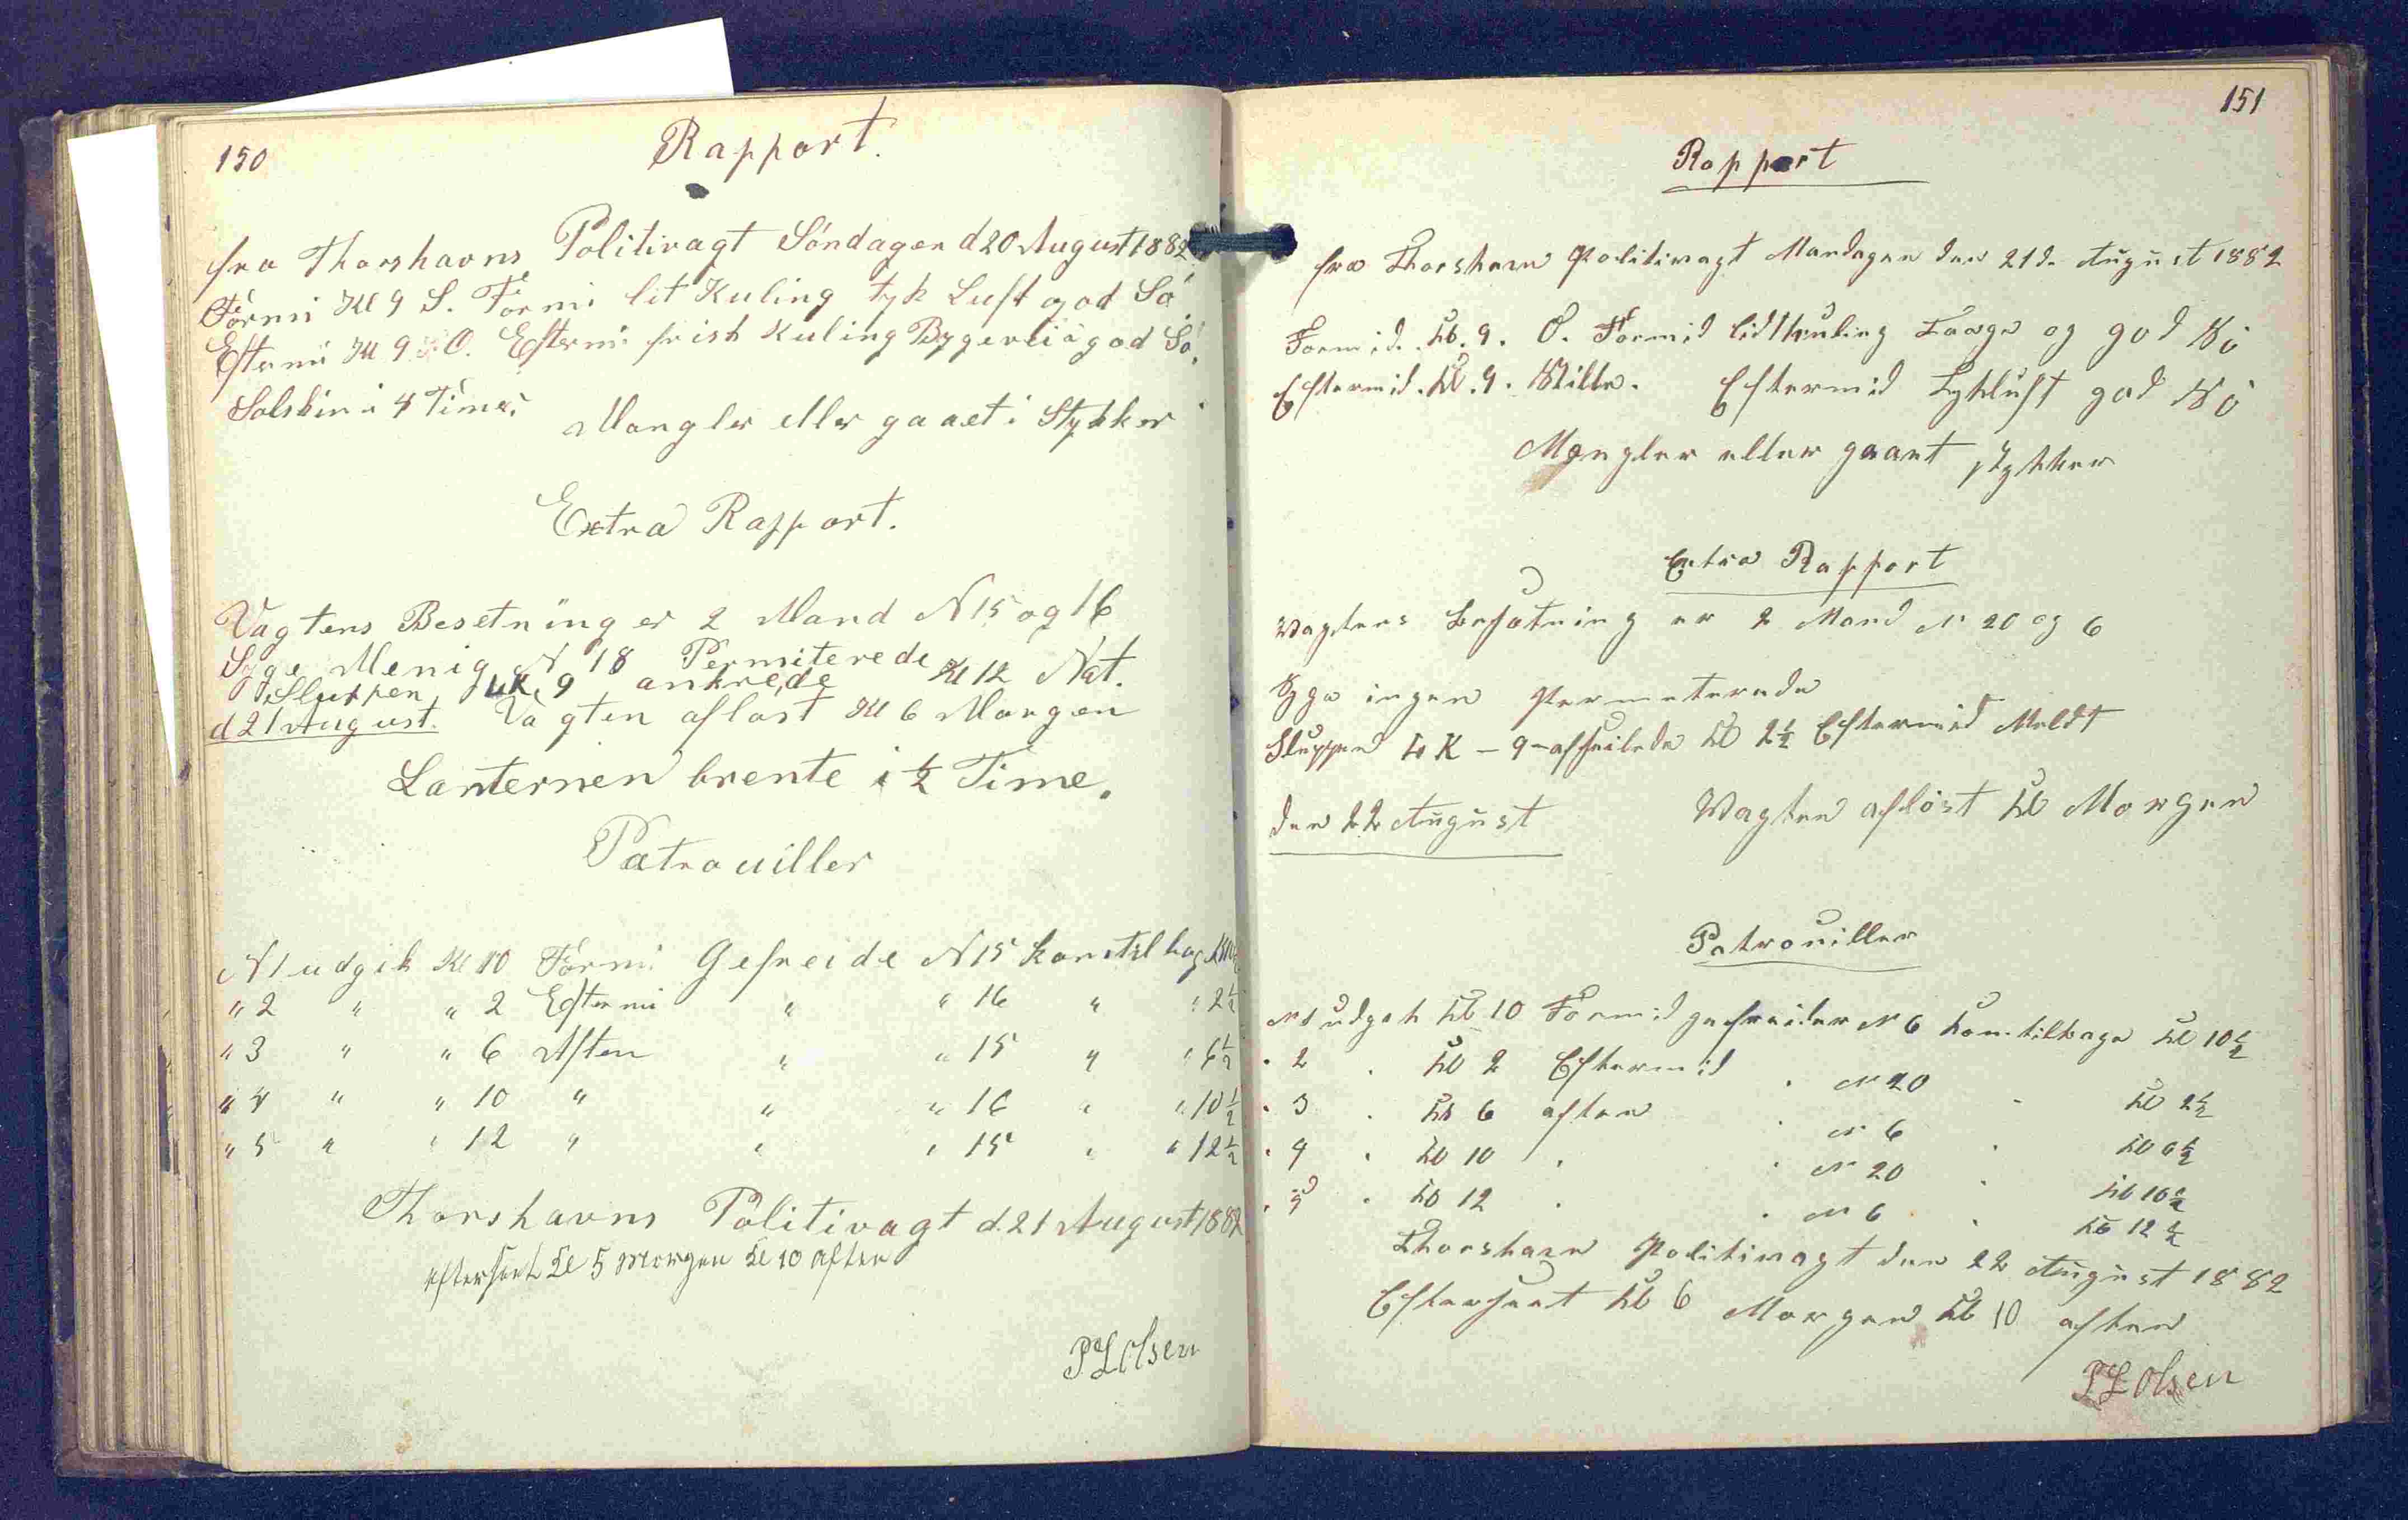 150
Rapport.
fra Thorshavns Politivagt Söndagen d 20 August 1882
Formi Kl 9 S. Formi lit Kuling tyk Luft god Sö
Eftermi Kl 9 O. Eftermi frisk Kuling god Sö.
Solskin i 4 Timer
Mangler eller gaaet i Stykker
Extra Rapport.
Vagtens Besetning er 2 Mand N 15 og 16
Syge Menig N 18 Permiterede
Sluppen LK, 9 ankrede Kl 12 Nat.
d 21 August. Vagten aflöst Kl 6 Morgen
Lanternen brente i ½ Time.
Patrouiller
N 1 udgik Kl 10 Formi Gefreide N 15 kom tilbag
" 2 " " 2 Eftermi " " 16 " " 2½
" 3 " " 6 Aften " " 15 " " 6½
" 4 " " 10 " " " 16 " " 10½
" 5 " " 12 " " " 15 " " 12½
Thorshavns Politivagt d. 21 August 1882
efterseet Kl 5 Morgen Kl 10 Aften
P L Olsen
151
Rapport
fra Thorshavn Politivagt Mandagen den 21d. August 1882
Formid. Kl. 9. O. Formid lidt kuling Taage og god Sö
Eftermid. Kl. 9. Stille. Eftermid Tykluft god Sö
Mangler eller gaaet stykker
Extra Rapport
Vagtens Besætning er 2 Mand N 20 og 6
Syge ingen Permeterede
Sluppen LK - 9 - afseilede Kl 2½ Eftermid Meldt
den 22 August Vagten aflöst Kl Morgen
Patrouiller
N 1 udgek Kl 10 Formid gefreider N 6 kom tilbage Kl 10½
" 2 " Kl 2 Eftermid " N 20 " Kl 2½
" 3 " Kl 6 aften " N 6 " Kl 6½
" 4 " Kl 10 " " N 20 " Kl 10½
" 5 " Kl 12 " " N 6 " Kl 12½
Thorshavn Politivagt den 22 August 1882
Efterseet Kl 6 Morgen Kl 10 aften
P L Olsen